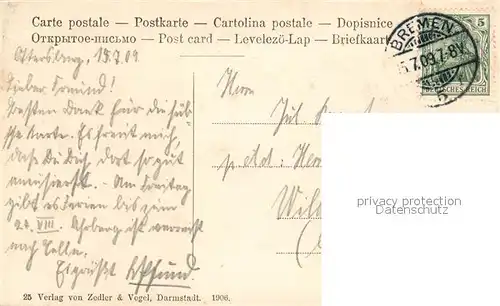 Carte postale — Postkarte — Cartolina postale — Dopisnice
Открытое-письмо — Post card — Levelező-Lap — Briefkaart
BREMEN
5.7.09.7-8V.
5
DEUTSCHES REICH
Ottersberg, 15.7.09
Lieber Freund!
Besten Dank für die hüb-
sche Karte. Es freut mich,
dass Du Dich dort so gut
amüsierst. – Am Freitag
gibt es Ferien bis zum
24. VIII. Ahrberg ist verreist
nach Celle.
Es grüßt
Herrn
Jul.
p. Adr: Herrn
privacy protection
Datenschutz
25 Verlag von Zedler & Vogel, Darmstadt. 1906.